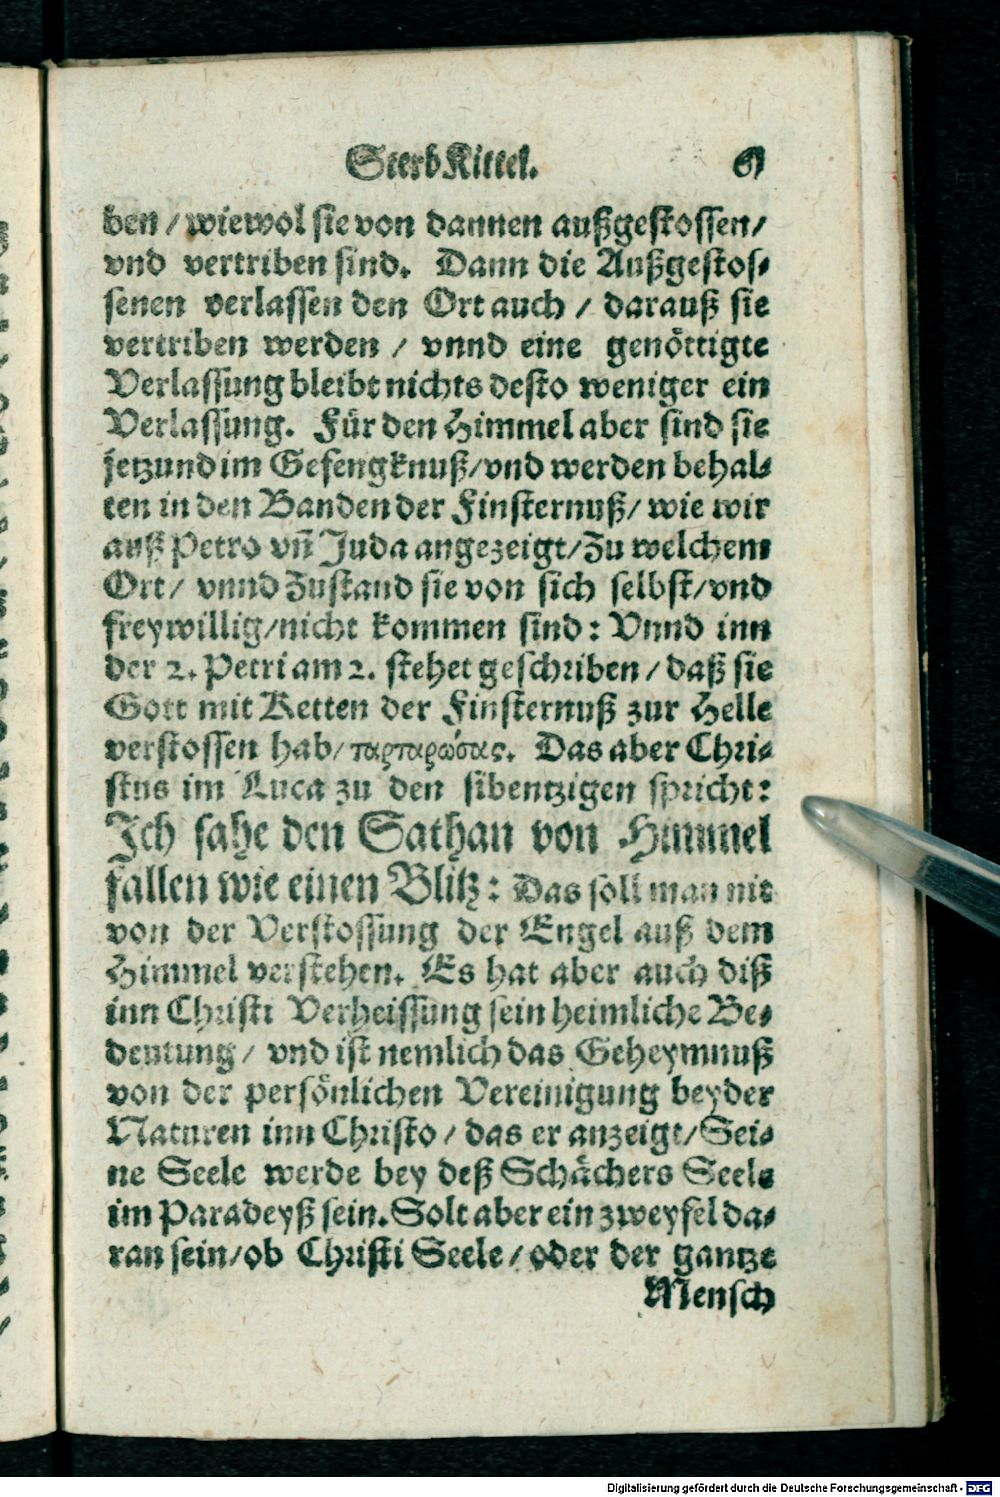 SterbKittel. 61
ben / wiewol sie von dannen außgestossen/
vnd vertriben sind. Dann die Außgestos-
senen verlassen den Ort auch / darauß sie
vertriben werden / vnnd eine genöttigte
Verlassung bleibt nichts desto weniger ein
Verlassung. Für den Himmel aber sind sie
jetzund im Gefengknuß/vnd werden behal-
ten in den Banden der Finsternuß/ wie wir
auß Petro vn̄ Juda angezeigt/Zu welchem
Ort/ vnnd Zustand sie von sich selbst/vnd
freywillig/nicht kommen sind: Vnnd inn
der 2. Petri am 2. stehet geschriben / daß sie
Gott mit Ketten der Finsternuß zur Helle
verstossen hab/ ταρταρώσας. Das aber Chri-
stus im Luca zu den sibentzigen spricht:
Ich sahe den Sathan von Himmel
fallen wie einen Blitz: Das soll man nit
von der Verstossung der Engel auß dem
Himmel verstehen. Es hat aber auch diß
inn Christi Verheissung sein heimliche Be-
deutung/ vnd ist nemlich das Geheymnuß
von der persönlichen Vereinigung beyder
Naturen inn Christo / das er anzeigt/Sei-
ne Seele werde bey deß Schächers Seele
im Paradeyß sein. Solt aber ein zweyfel da-
ran sein/ob Christi Seele / oder der gantze
Mensch
Digitalisierung gefördert durch die Deutsche Forschungsgemeinschaft - DFG